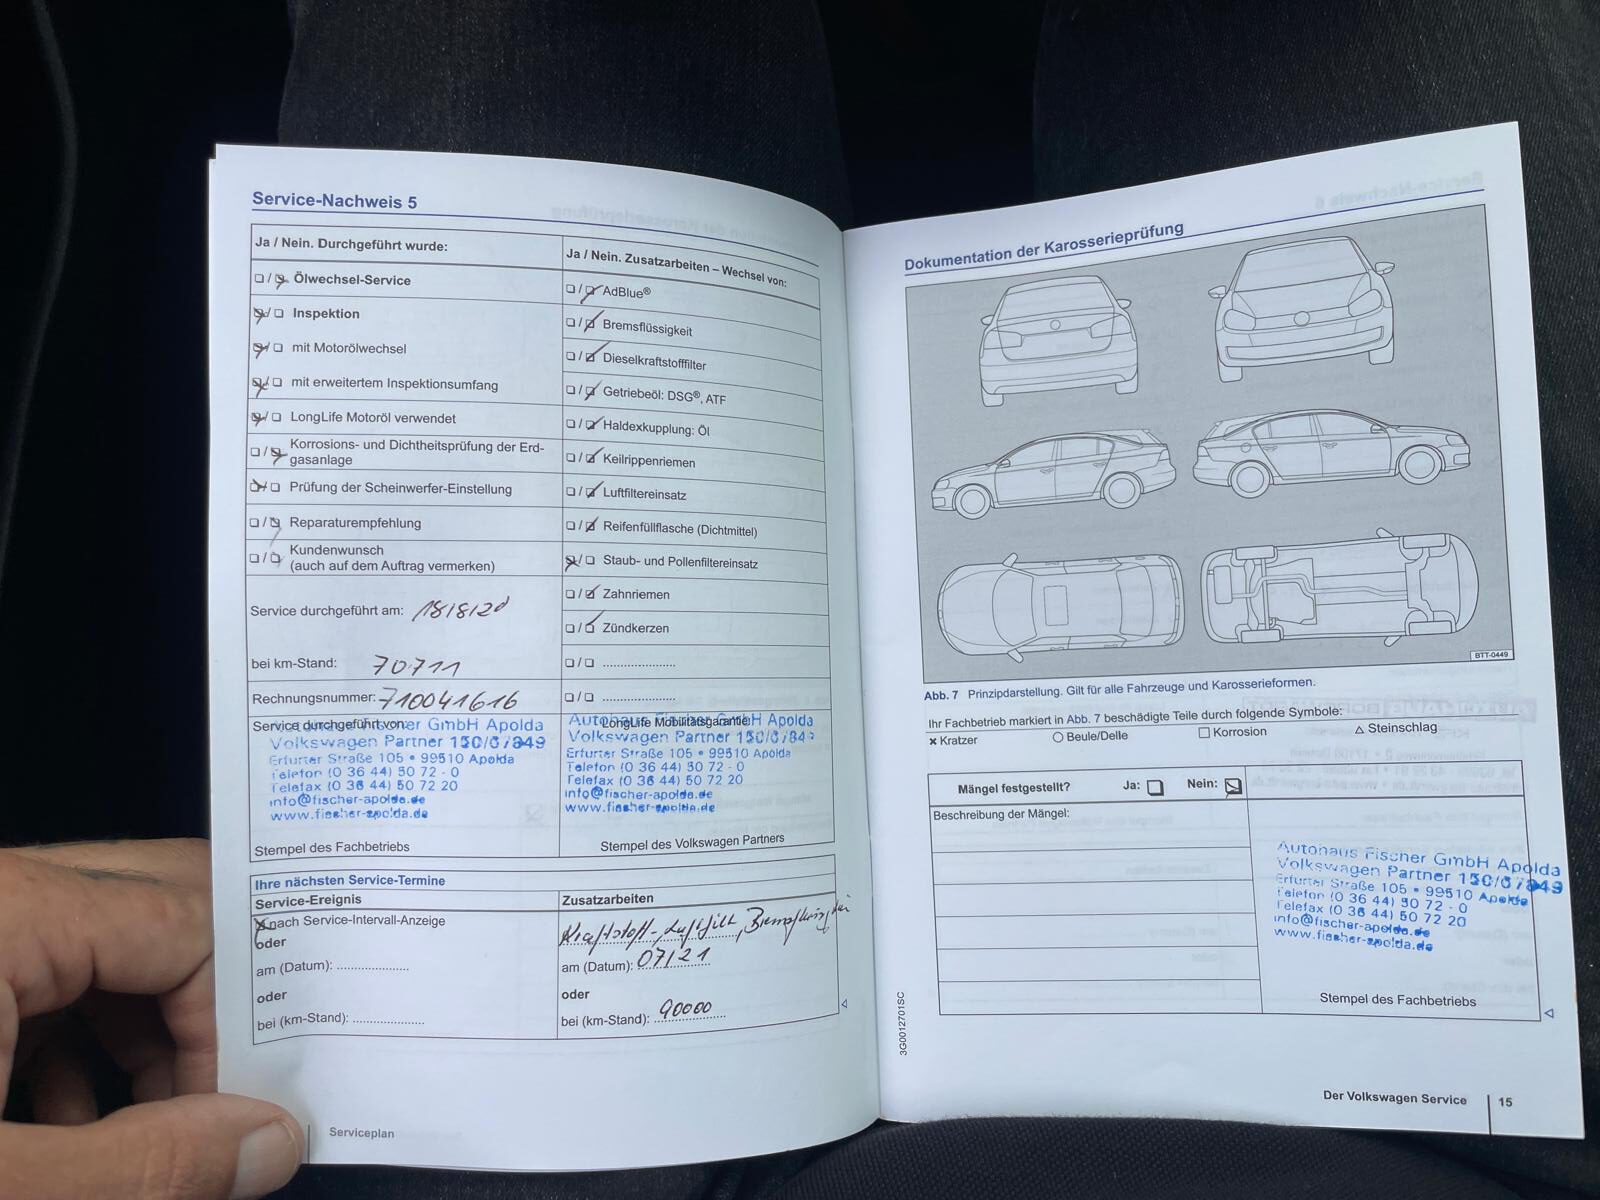 Service-Nachweis 5
Ja / Nein. Durchgeführt wurde:
Ölwechsel-Service
Inspektion
mit Motorölwechsel
mit erweitertem Inspektionsumfang
LongLife Motoröl verwendet
Korrosions- und Dichtheitsprüfung der Erd-
gasanlage
Prüfung der Scheinwerfer-Einstellung
Reparaturempfehlung
Kundenwunsch
(auch auf dem Auftrag vermerken)
Service durchgeführt am: 18/8/20
bei km-Stand: 70711
Rechnungsnummer: 710041616
Service durchgeführt von:
Autohaus Fischer GmbH Apolda
Volkswagen Partner 150/07849
Erfurter Straße 105 • 99510 Apolda
Telefon (0 36 44) 50 72 - 0
Telefax (0 36 44) 50 72 20
info@fischer-apolda.de
www.fischer-apolda.de
Stempel des Fachbetriebs
Ja / Nein. Zusatzarbeiten – Wechsel von:
AdBlue®
Bremsflüssigkeit
Dieselkraftstofffilter
Getriebeöl: DSG®, ATF
Haldexkupplung: Öl
Keilrippenriemen
Luftfiltereinsatz
Reifenfüllflasche (Dichtmittel)
Staub- und Pollenfiltereinsatz
Zahnriemen
Zündkerzen
LongLife Mobilitätsgarantie:
Autohaus Fischer GmbH Apolda
Volkswagen Partner 150/07849
Erfurter Straße 105 • 99510 Apolda
Telefon (0 36 44) 50 72 - 0
Telefax (0 36 44) 50 72 20
info@fischer-apolda.de
www.fischer-apolda.de
Stempel des Volkswagen Partners
Ihre nächsten Service-Termine
Service-Ereignis
nach Service-Intervall-Anzeige
oder
am (Datum):
oder
bei (km-Stand):
Zusatzarbeiten
Kraftstoff-, Luftfilt,
am (Datum): 07/21
oder
bei (km-Stand): 90000
Serviceplan
Dokumentation der Karosserieprüfung
BTT-0449
Abb. 7 Prinzipdarstellung. Gilt für alle Fahrzeuge und Karosserieformen.
Ihr Fachbetrieb markiert in Abb. 7 beschädigte Teile durch folgende Symbole:
Kratzer Beule/Delle Korrosion Steinschlag
Mängel festgestellt? Ja: Nein:
Beschreibung der Mängel:
Autohaus Fischer GmbH Apolda
Volkswagen Partner 150/07849
Erfurter Straße 105 • 99510 Apolda
Telefon (0 36 44) 50 72 - 0
Telefax (0 36 44) 50 72 20
info@fischer-apolda.de
www.fischer-apolda.de
Stempel des Fachbetriebs
3G0012701SC
Der Volkswagen Service 15